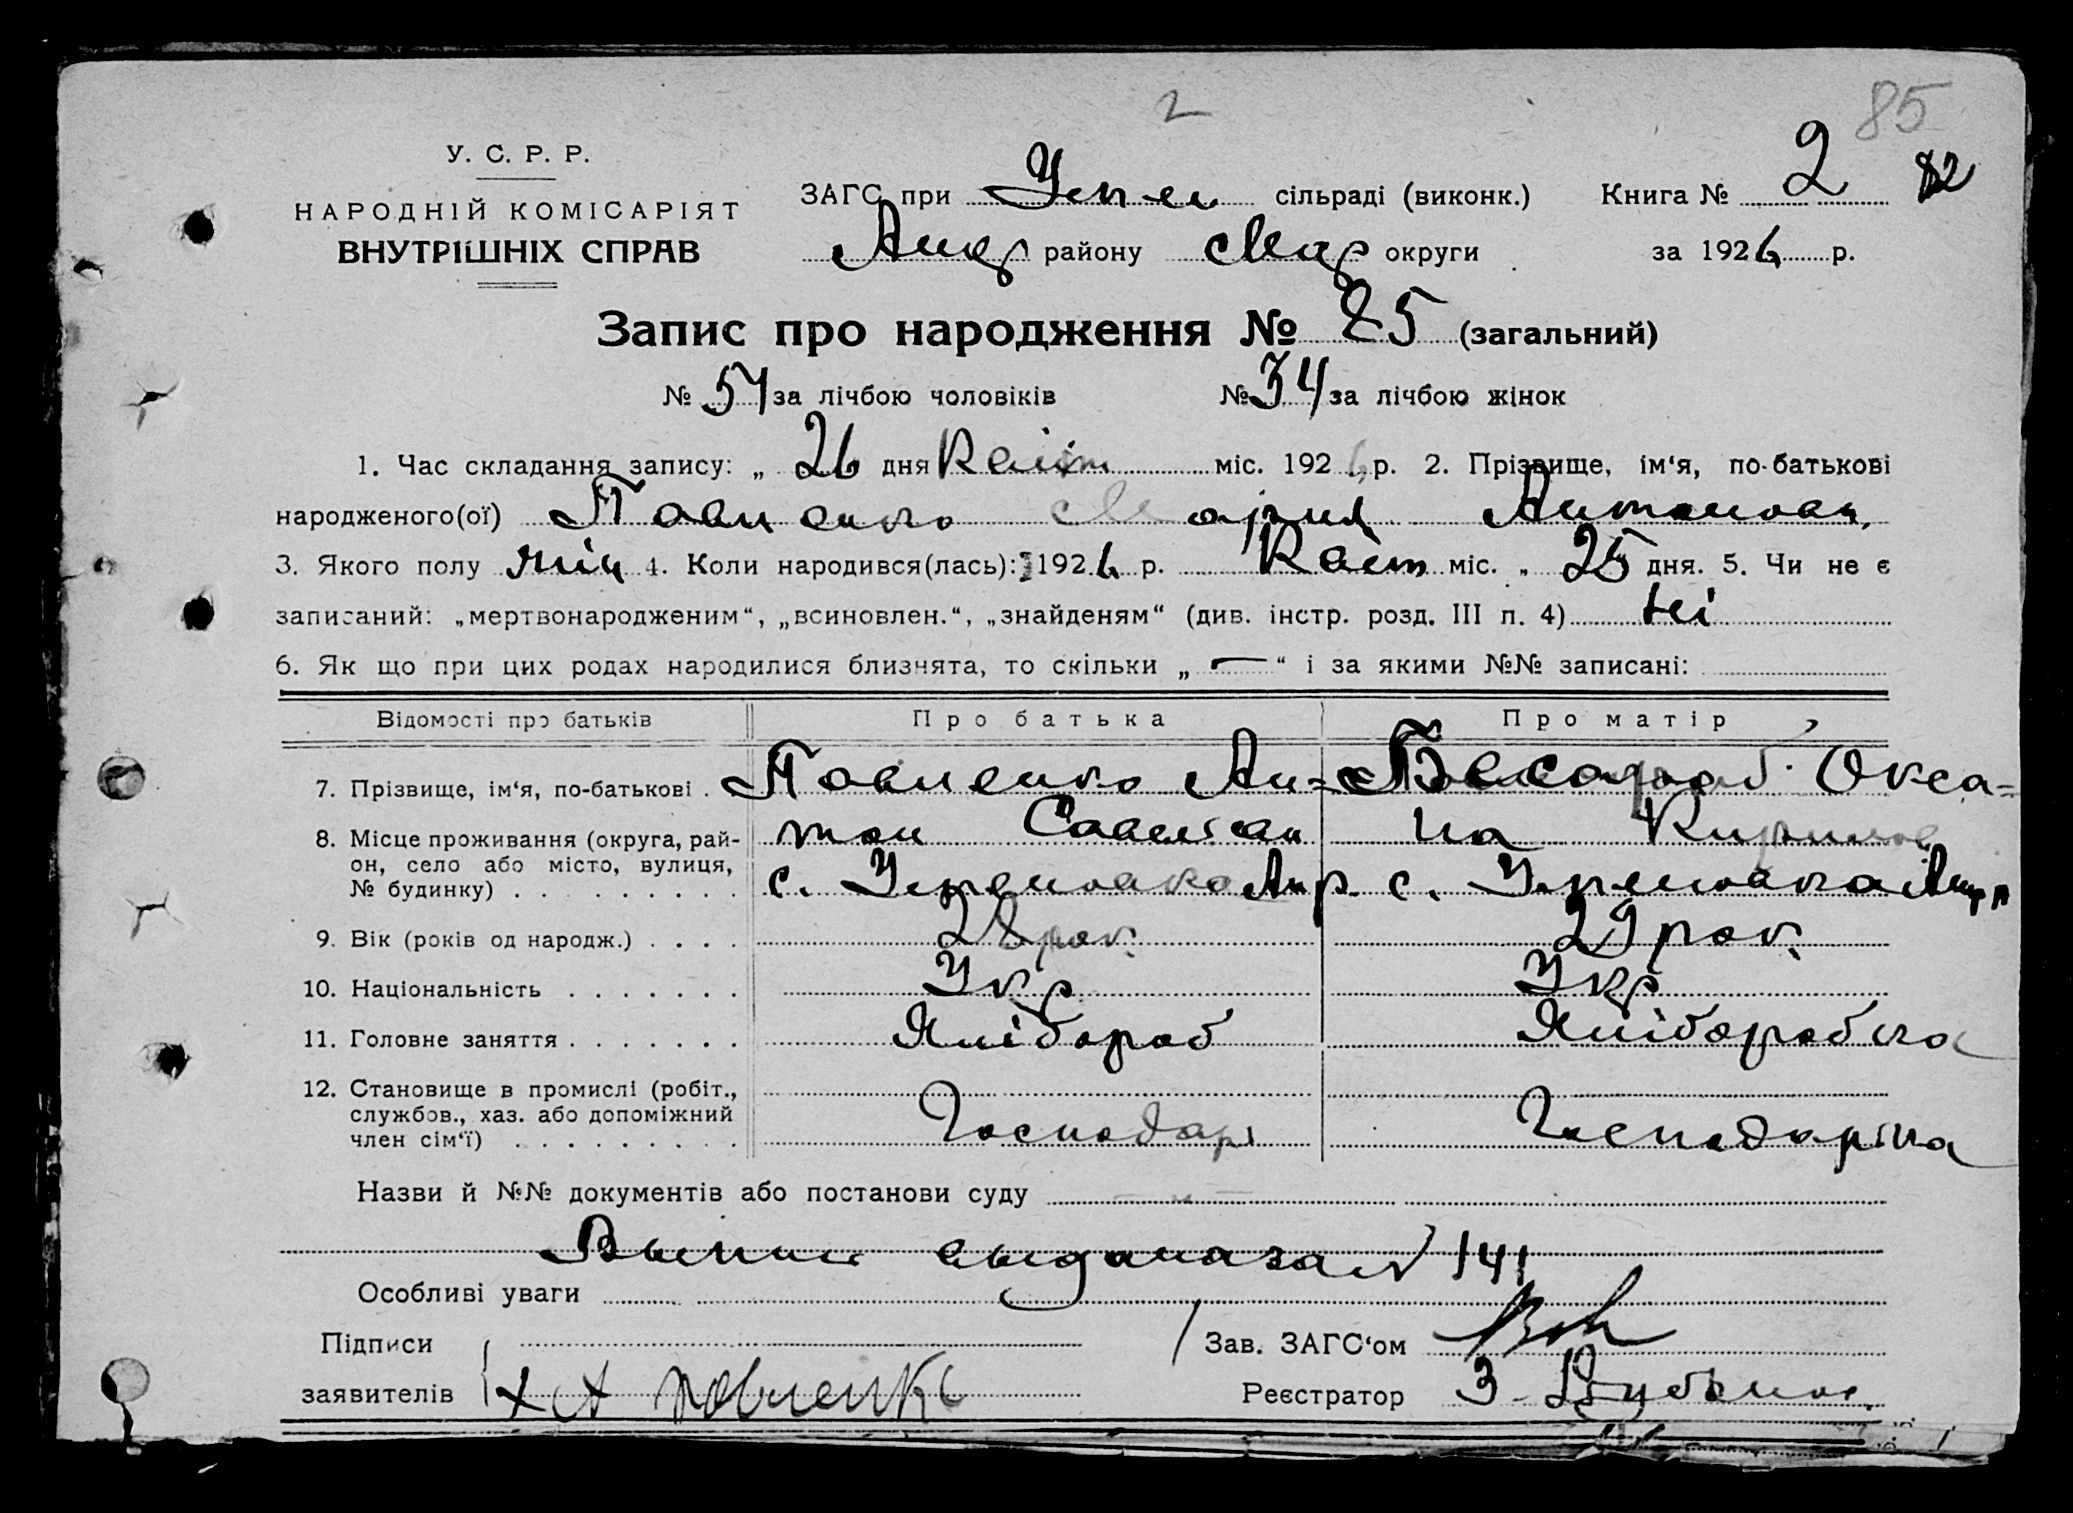 2
85
У. С. Р. Р.
НАРОДНІЙ КОМІСАРІЯТ
ВНУТРІШНІХ СПРАВ
ЗАГС при сільраді (виконк.) Книга № 2 82
Андр району Мар округи за 1926 р.
Запис про народження № 85 (загальний)
№ 51 за лічбою чоловіків № 34 за лічбою жінок
1. Час складання запису: „ 26 дня Квіт міс. 1926 р. 2. Прізвище, ім‘я, по-батькові
народженого(ої) Павленко Мария Антоновн.
3. Якого полу жін 4. Коли народився(лась): 1926 р. Квіт міс. „ 25 дня. 5. Чи не є
записаний: „мертвонародженим“, „всиновлен.“, „знайденям“ (див. інстр. розд. III п. 4) ні
6. Як що при цих родах народилися близнята, то скільки „ — “ і за якими №№ записані:
Відомості про батьків Про батька Про матір
7. Прізвище, ім‘я, по-батькові . Павленко Ан= Оксa=
тон на
8. Місце проживання (округа, рай-
он, село або місто, вулиця,
№ будинку) с. с.
9. Вік (років од народж.) 28 рок. 29 рок.
10. Національність Укр Укр
11. Головне заняття Хлібороб Хліборобка
12. Становище в промислі (робіт.,
службов., хаз. або допоміжний
член сім‘ї) Господарь Господаріка
Назви й №№ документів або постанови суду
выдана за № 141
Особливі уваги
Підписи Зав. ЗАГС‘ом
заявителів х А Павленко Реєстратор З.